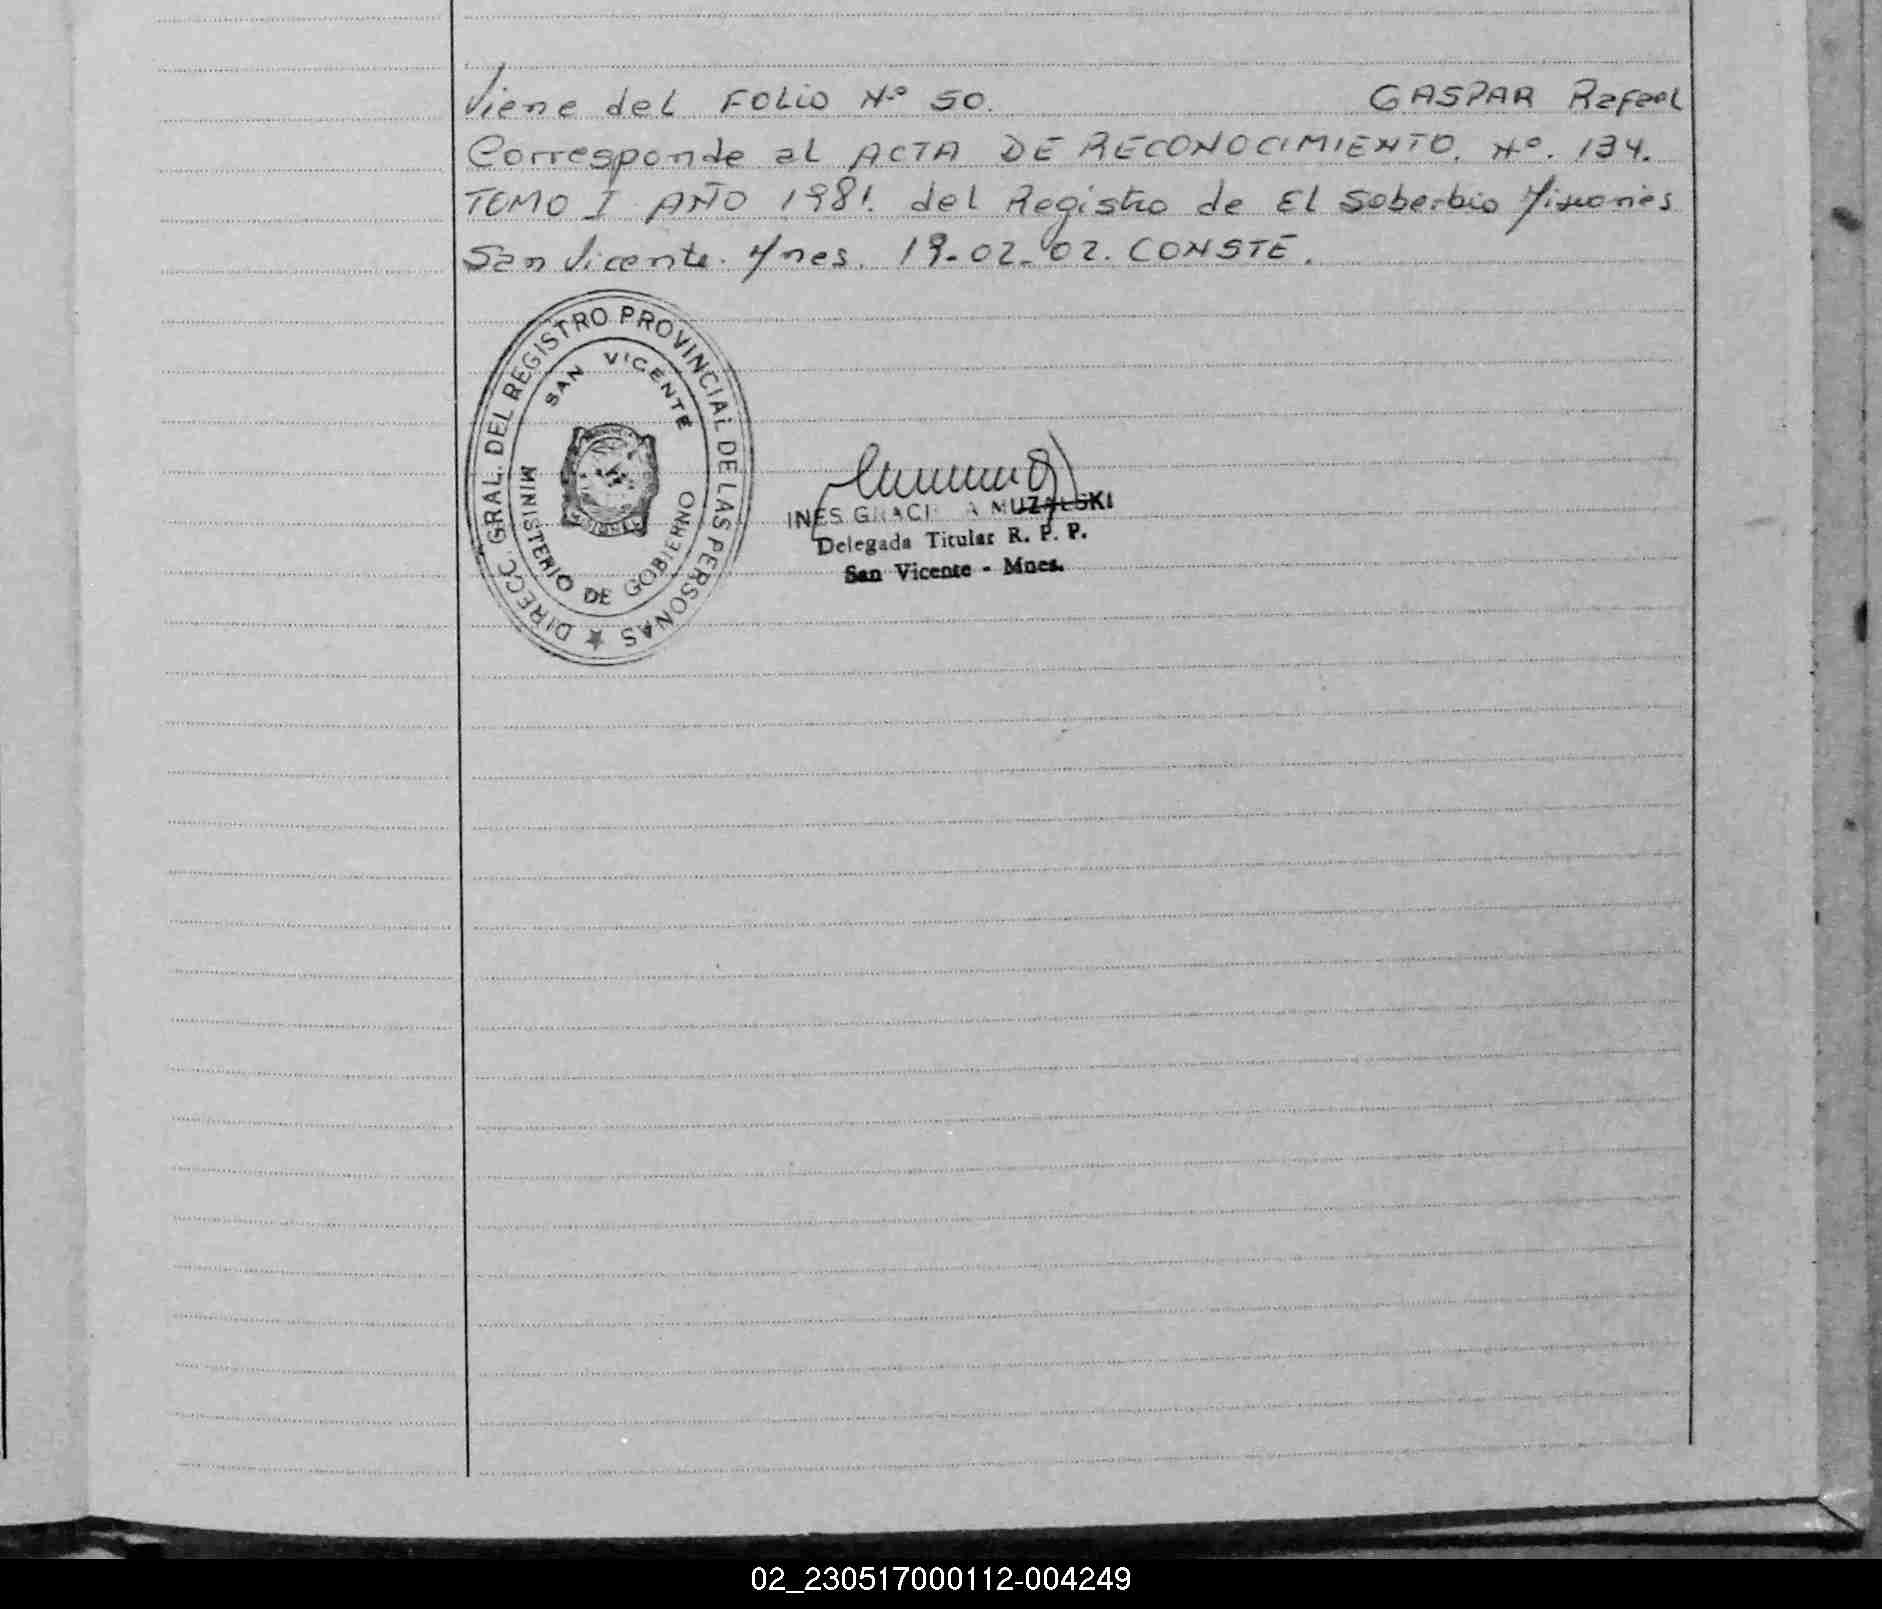 Viene del FOLIO Nº 50. GASPAR Rafael
Corresponde al ACTA DE RECONOCIMIENTO. Nº. 134.
TOMO I AÑO 1981. del Registro de El Soberbio Misiones
San Vicente. Mnes. 19-02-02. CONSTE.
DIRECC. GRAL. DEL REGISTRO PROVINCIAL DE LAS PERSONAS
SAN VICENTE
MINISTERIO DE GOBIERNO
INES GRACI A MUZALSKI
Delegada Titular R. P. P.
San Vicente - Mnes.
02_230517000112-004249